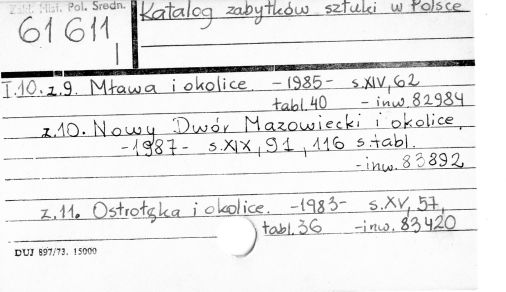 Zakł. Hist. Pol. Średn.
61611
I
Katalog zabytków sztuki w Polsce
I.10. z.9. Mława i okolice. -1985- s.XIV, 62
tabl.40 - inw. 82984
z.10. Nowy Dwór Mazowiecki i okolice.
-1987- s.XIX, 91, 116 s.tabl.
-inw. 83892
z.11. Ostrołęka i okolice. -1983- s.XV, 57,
tabl.36 -inw. 83420
DUJ 897/73. 15000